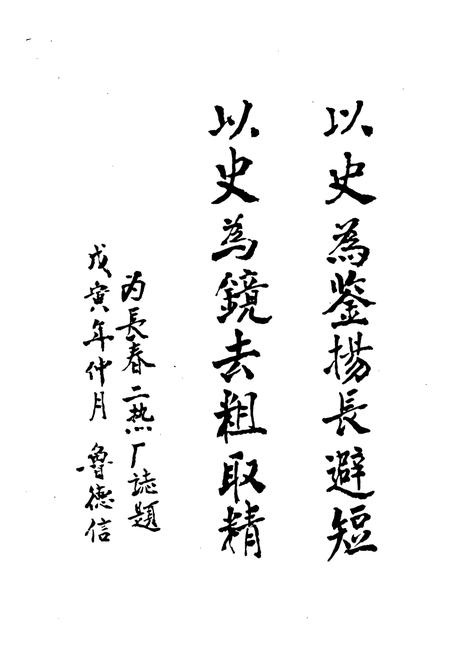 以史為鉴揚長避短
以史為鏡去粗取精
为長春二热厂誌題
戊寅年仲月 魯德信